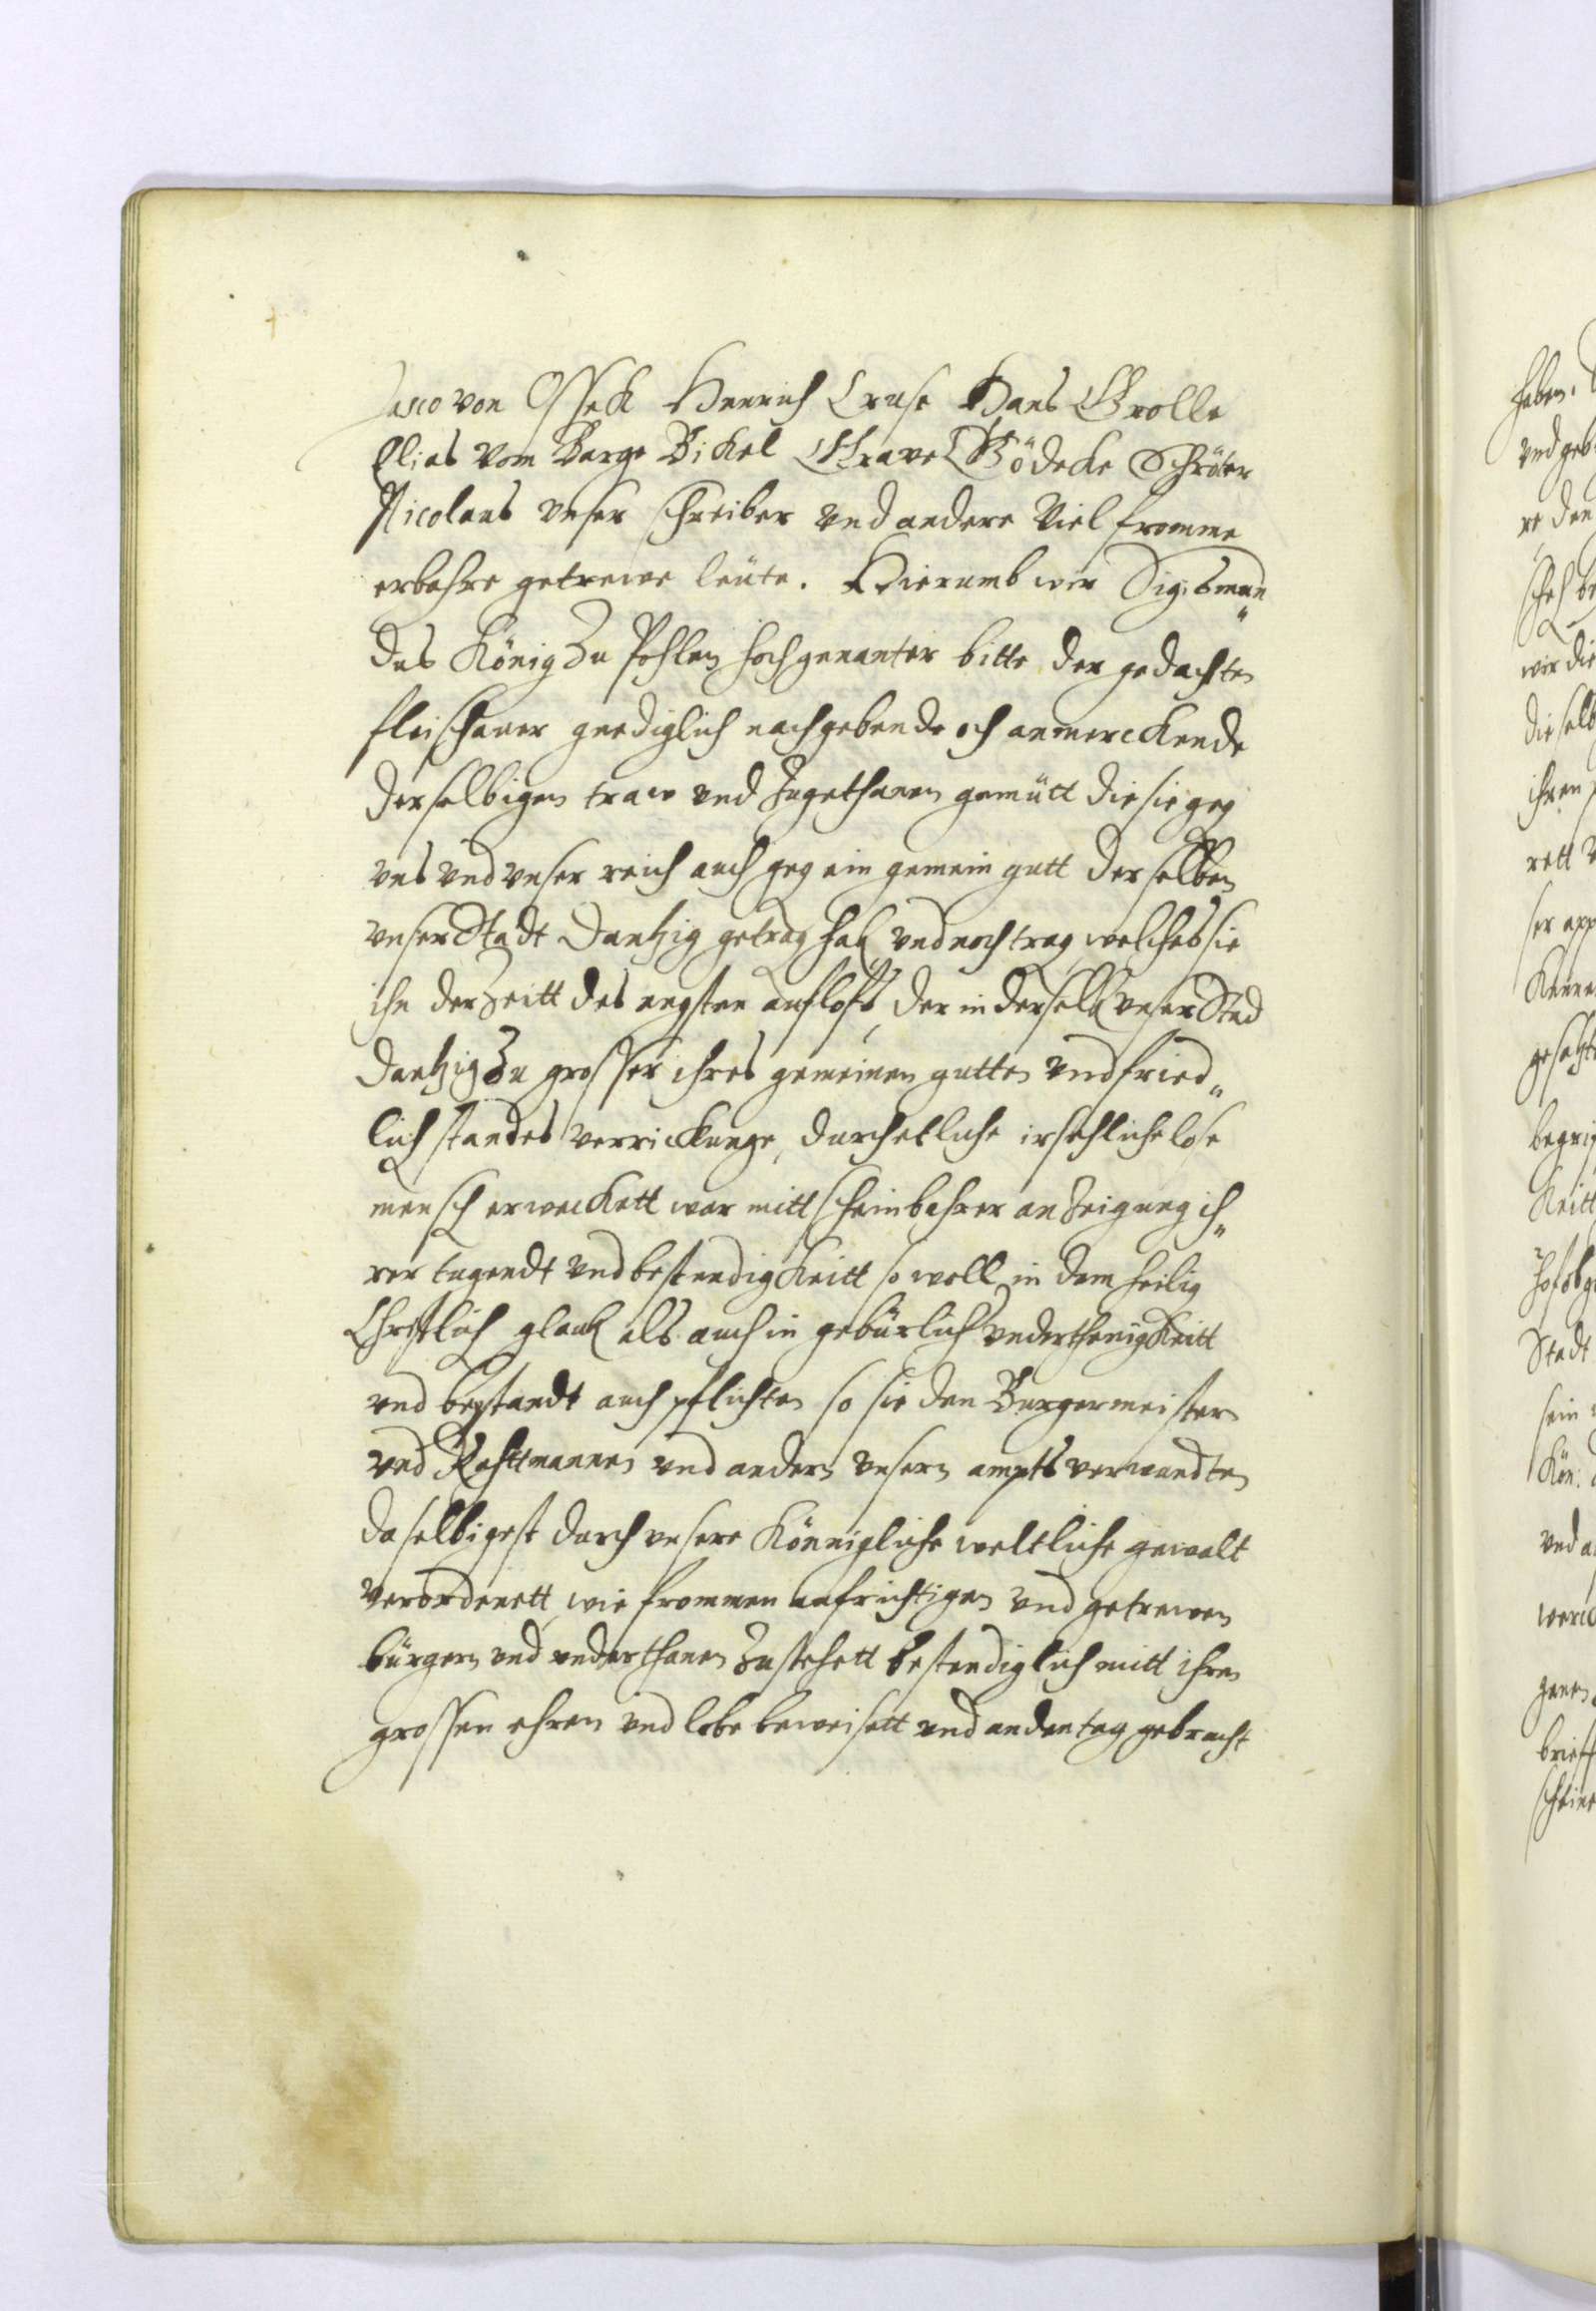 Jasco von Osseck Henrich Cruse Hans Grolle
Elias vom Barge Bikel Grave Gödeke Schröter
Nicolaus vnser schreiber vnd andere Viel fromme
erbahre getrewe leüte. Hierumb wir Sigismun„
dus König Zu Pohlen hochgenanter bitte der gedachten
fleischauer gnediglich nachgebende och anmerckende
derselbigen traw vnd Zugethanen gemütt die sie geg
vns vnd vnser reich auch geg ein gemein gutt derselben
vnser Stadt Dantzig getrag hab vnd noch trag, welches sie
ihn der Zeitt des angsten aufloffs, der in derselb vnser Stad
Dantzig Zu grosser ihres gemeinen guttes vnd fried„
lich standes verrickunge, durch etliche irsehliche lose
mensch erweckett war mitt scheinbahrer anzeigung ih„
rer tugendt vnd bestendigkeitt so woll in dem heilig
Christlich glaub als auch in gebürlich vnderthenigkeitt
vnd beystandt auch pflichten so sie den Burgermeistern
vnd Rahttmannen vnd andern vnsern ampts verwandten
daselbigest durch vnsere Königliche weltliche gewalt
verordenett, wie frommen aufrichtigen vnd getrewen
bürgern vnd vnderthanen Zustehett bestendiglich mitt ihren
grossen ehren vnd lobe beweisett vnd an den tag gebracht
haben.